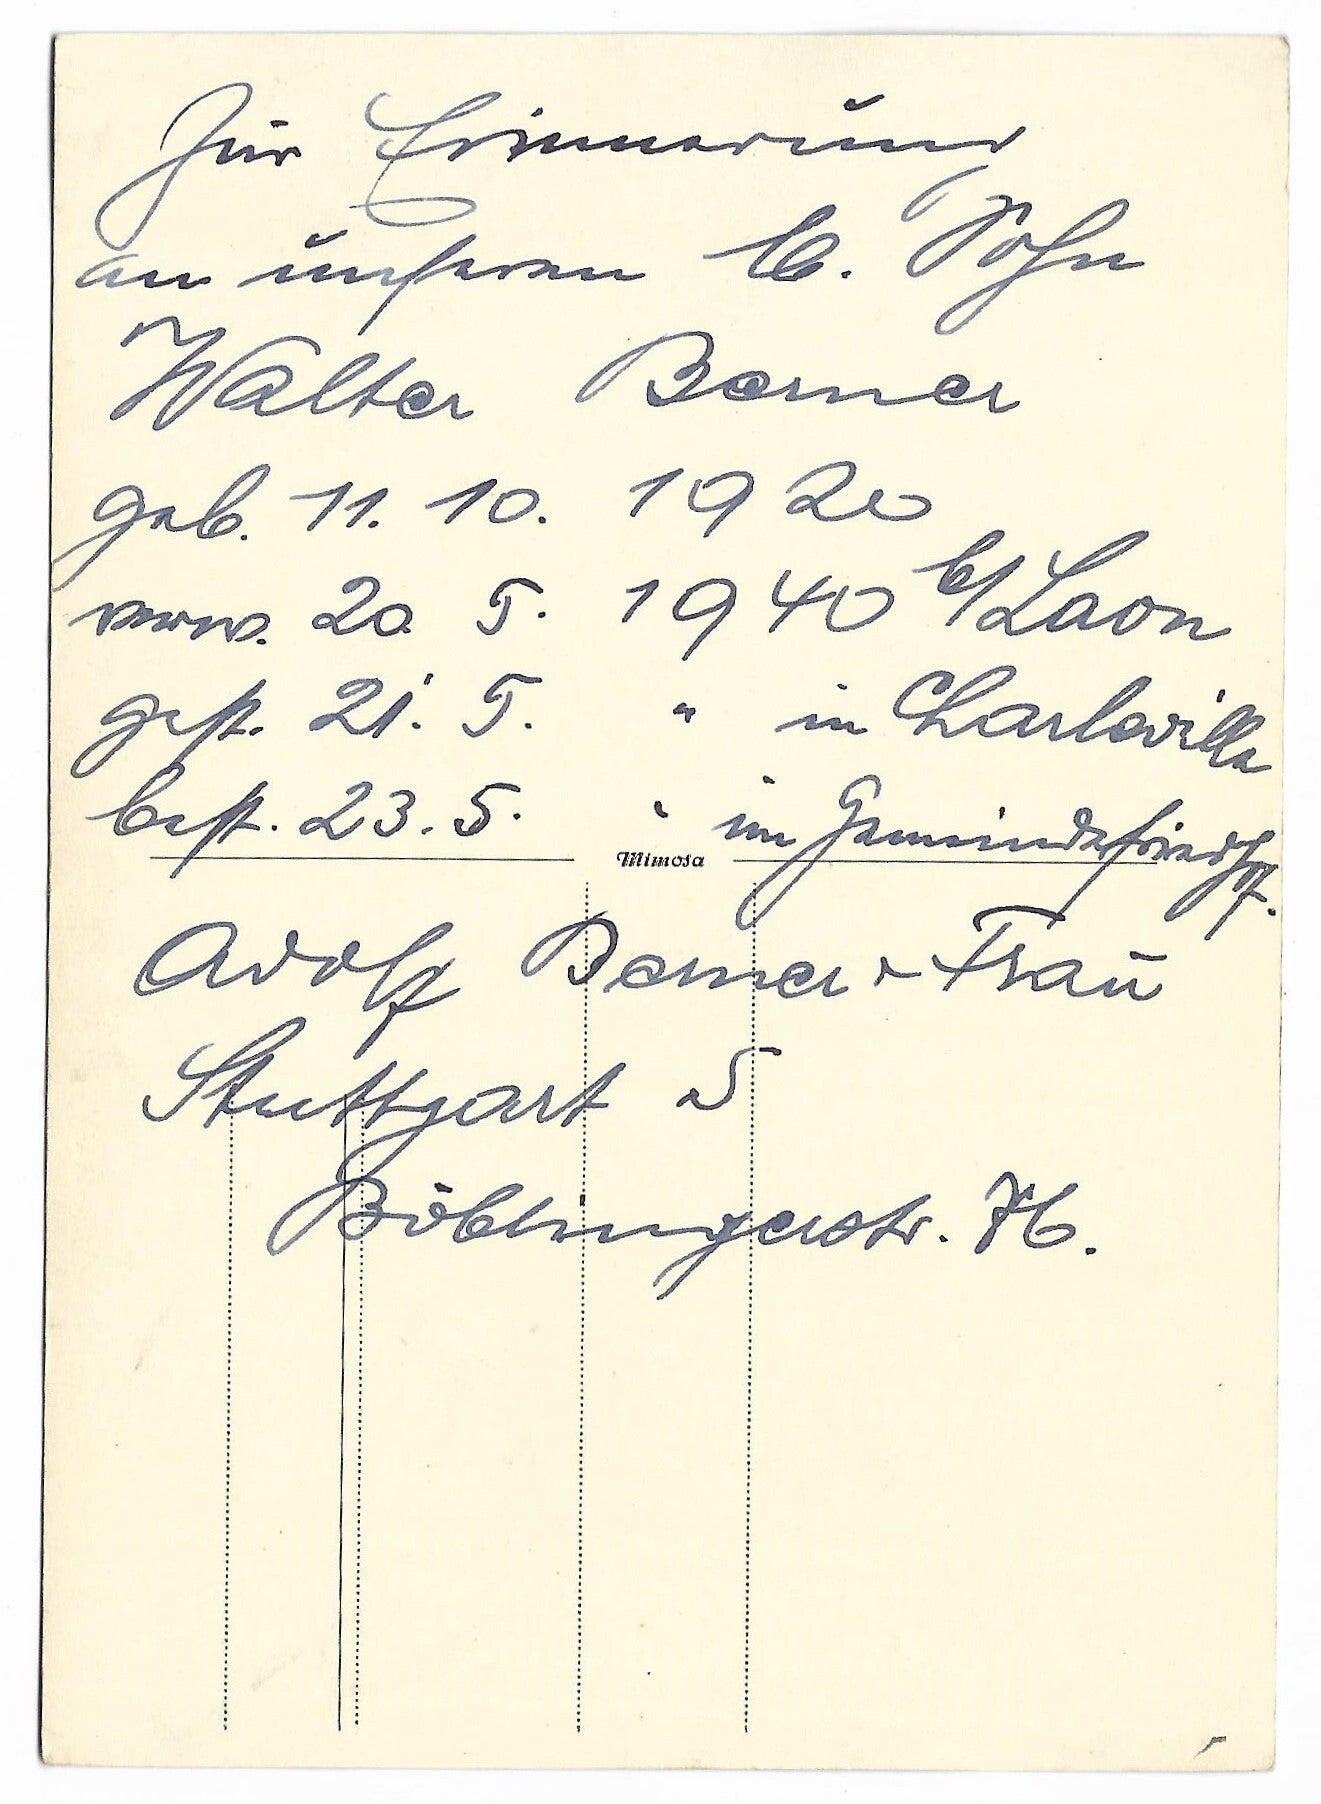 Zur Erinnerung
an unseren lb. Sohn
Walter Berner
geb. 11. 10. 1920
verw. 20. 5. 1940 b/Laon
gest. 21. 5. " in Charleville
best. 23. 5. " im Gemeindefriedhof.
Mimosa
Adolf Berner u Frau
Stuttgart S
Böblingerstr. 76.